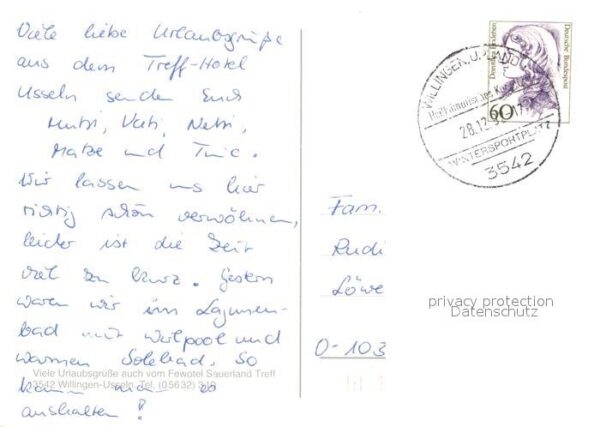 Viele liebe Urlaubsgrüße
aus dem Treff-Hotel
Usseln senden Euch
Mutti, Vati, Netti,
Matze und
Wir lassen uns hier
richtig schön verwöhnen,
leider ist die Zeit
viel zu kurz. Gestern
waren wir im Lagunen-
bad mit Wirlpool und
warmen Solebad. So
kann man es
aushalten!
Viele Urlaubsgrüße auch vom Fewotel Sauerland Treff
3542 Willingen-Usseln, Tel. (05632)
Deutsche Bundespost
60
WILLINGEN, U
28.12.
WINTERSPORTPLATZ
3542
Fam.
Rudi
Löwe
O-103
privacy protection
Datenschutz